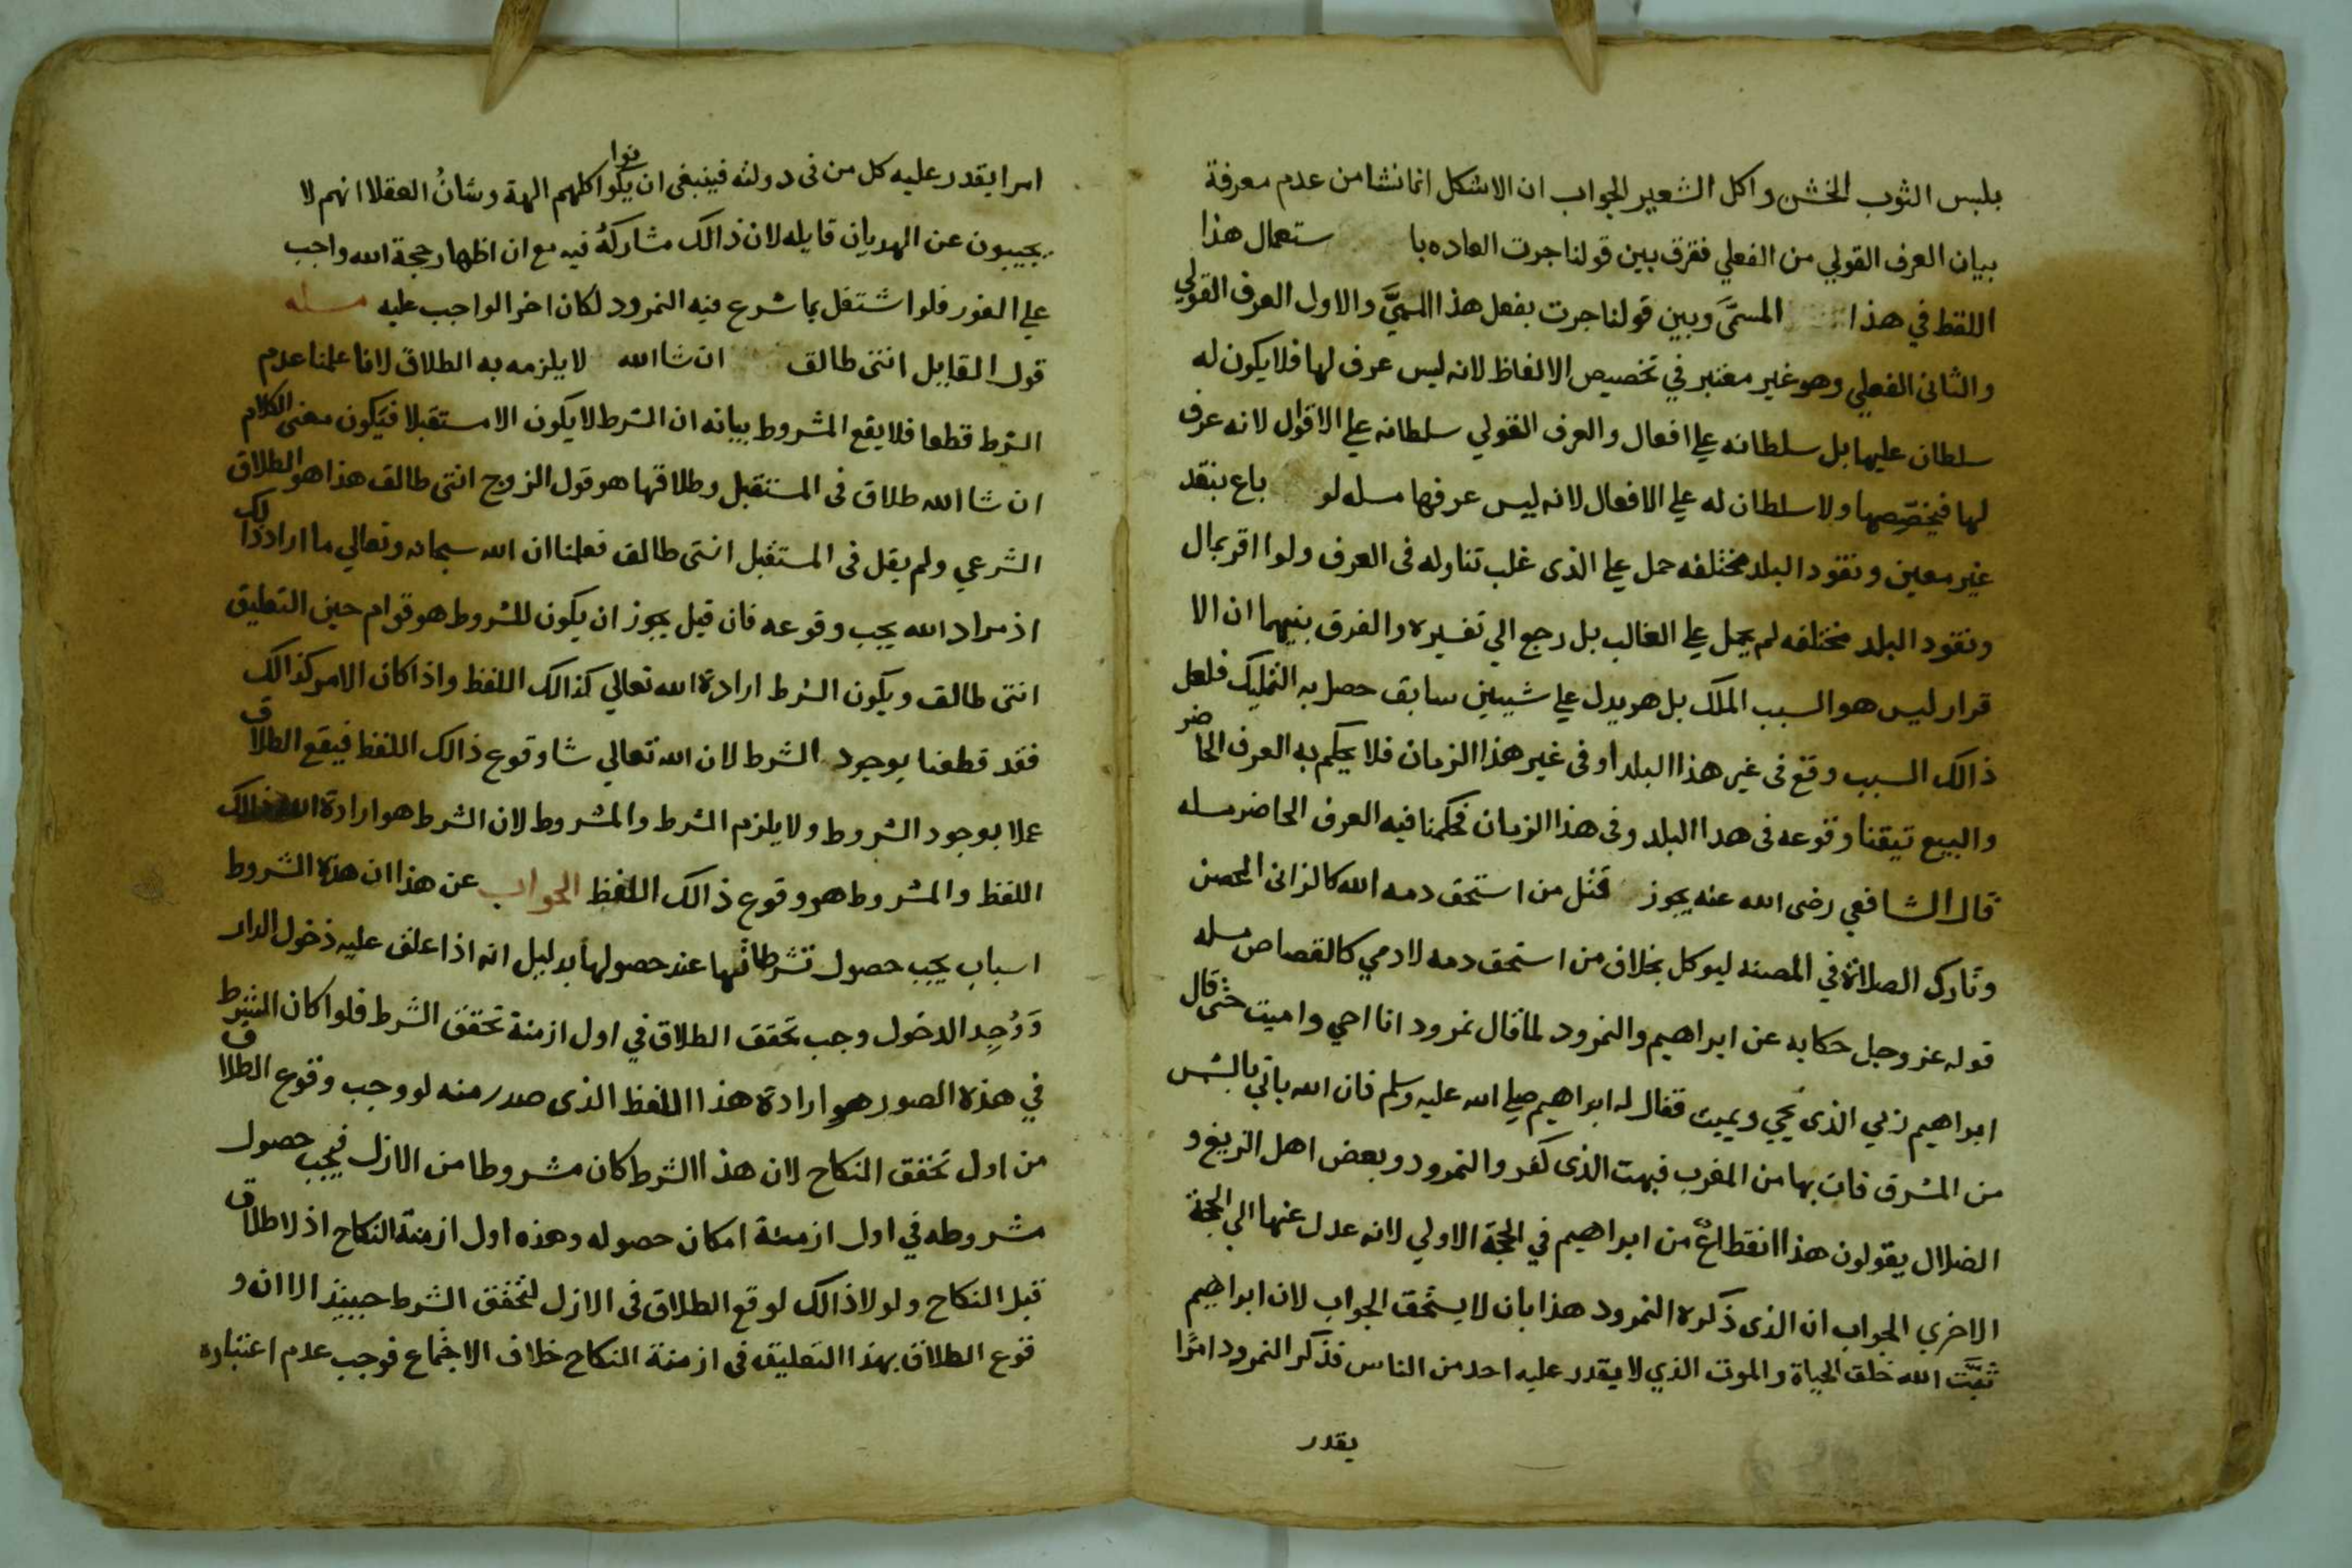 بلبس الثوب الخشن واكل الشعير الجواب ان الاشكل انما نشا من عدم معرفة
بيان العرف القولي من الفعلي ففرق بين قولنا جرت العاده با ستعمال هذا
اللفظ في هذا المسمَّى وبين قولنا جرت بفعل هذا المسمَّي والاول العرف القولي
والثاني الفعلي وهو غير معتبر في تخصيص الالفاظ لانه ليس عرف لها فلا يكون له
سلطان عليها بل سلطانه علي افعال والعرف القولي سلطانه علي الاقوال لانه عرف
لها فيخصّصها ولا سلطان له علي الافعال لانه ليس عرفها مسله لو باع بنقد
غير معين ونقود البلد مختلفه حمل علي الذي غلب تناوله في العرف ولوا اقر بمال
ونقود البلد مختلفه لم يحمل علي الغالب بل رجع الي تفسيره والفرق بنيهما ان الا
قرار ليس هو السبب الملك بل هو يدل علي شيين سابق حصل به التمليك فلعل
ذالك السبب وقع في غير هذا البلد او في غير هذا الزمان فلا يحكم به العرف الحاضر
والبيع تيقنا وقوعه في هدا البلد وفي هذا الزمان فحكمنا فيه العرف الحاضر مسله
قال الشافعي رضي الله عنه يجوز قتل من استحق دمه الله كالزاني المحصن
وتارك الصلاة في المصنه ليوكل بخلاف من استحق دمه لادمي كالقصاص مسله
قوله عز وجل حكايه عن ابراهيم والنمرود لما قال نمرود انا احي واميت حتى قال
ابراهيم ربي الذي يُحيي ويميت فقال له ابراهيم صلي الله عليه وسلم فان الله ياتي بالشمس
من المشرق فات بها من المغرب فبهت الذي كفر والنمرود وبعض اهل الزيغ و
الضلال يقولون هذا انقطاعٌ من ابراهيم في الحجة الاولي لانه عدل عنها الي الحجة
الاخري الجواب ان الذي ذكره النمرود هذا بان لا يستحق الجواب لان ابراهيم
ثبَّت الله خلق الحياة والموت الذي لا يقدر عليه احد من الناس فذكر النمرود امرًا
يقدر
امرا يقدر عليه كل من في دولته فينبغي ان يكونوا كلهم الهة وشانُ العقلا انهم لا
يجيبون عن الهديان قايله لان ذالك مشاركةُ فيه مع ان اظهار حجة الله واجب
علي الفور فلوا شتغل بما شرع فيه النمرود لكان اخر الواجب عليه مسله
قول القايل انتى طالق ان شا الله لا يلزمه به الطلاق لانا علمنا عدم
الشرط قطعا فلا يقع المشروط بيانه ان الشرط لا يكون الا مستقبلا فيكون معنى الكلام
ان شا الله طلاق في المستقبل وطلاقها هو قول الزوج انتى طالق هذا هو الطلاق
الشرعي ولم يقل في المستقبل انتى طالق فعلمنا ان الله سبحانه وتعالي ما اراد ذالك
اذ مراد الله يجب وقوعه فان قيل يجوز ان يكون للشروط هو قوام حين التعليق
انتى طالق ويكون الشرط ارادة الله تعالي كذالك اللفظ واذا كان الامر كذالك
فقد قطعنا بوجود الشرط لان الله تعالي شا وقوع ذالك اللفظ فيقع الطلاق
عملا بوجود الشروط ولا يلزم الشرط والمشروط لان الشرط هو ارادة الله ذالك
اللفظ والمشروط هو وقوع ذالك اللفظ الجواب عن هذا ان هذه الشروط
اسباب يجب حصول تشرطاتها عند حصولها بدليل انه اذا علق عليه دخول الدار
وَوُجِد الدخول وجب تحقق الطلاق في اول ازمنة تحقق الشرط فلوا كان الشرط
في هذه الصور هو ارادة هذا اللفظ الذي صدر منه لووجب وقوع الطلاق
من اول تحقق النكاح لان هذا الشرط كان مشروطا من الازل فيجب حصول
مشروطه في اول ازمنة امكان حصوله وهذه اول ازمنة النكاح اذ لا طلاق
قبل النكاح ولولا ذالك لوقع الطلاق في الازل لتحقق الشرط حينيذ الا ان و
قوع الطلاق بهذا التعليق في ازمنة النكاح خلاف الاجماع فوجب عدم اعتباره